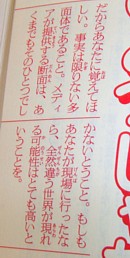 だからあなたに覚えてほ
しい。事実は限りない多
面体であること。メディ
アが提供する断面は、あ
くまでもそのひとつでし
かないとうこと。もしも
あなたが現場に行ったな
ら、全然違う世界が現れ
る可能性はとても高いと
いうことを。